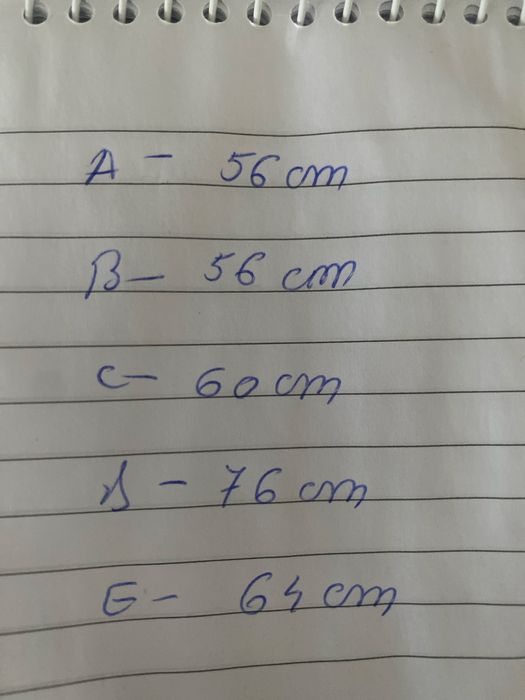 A - 56 cm
B - 56 cm
C - 60 cm
D - 76 cm
E - 64 cm